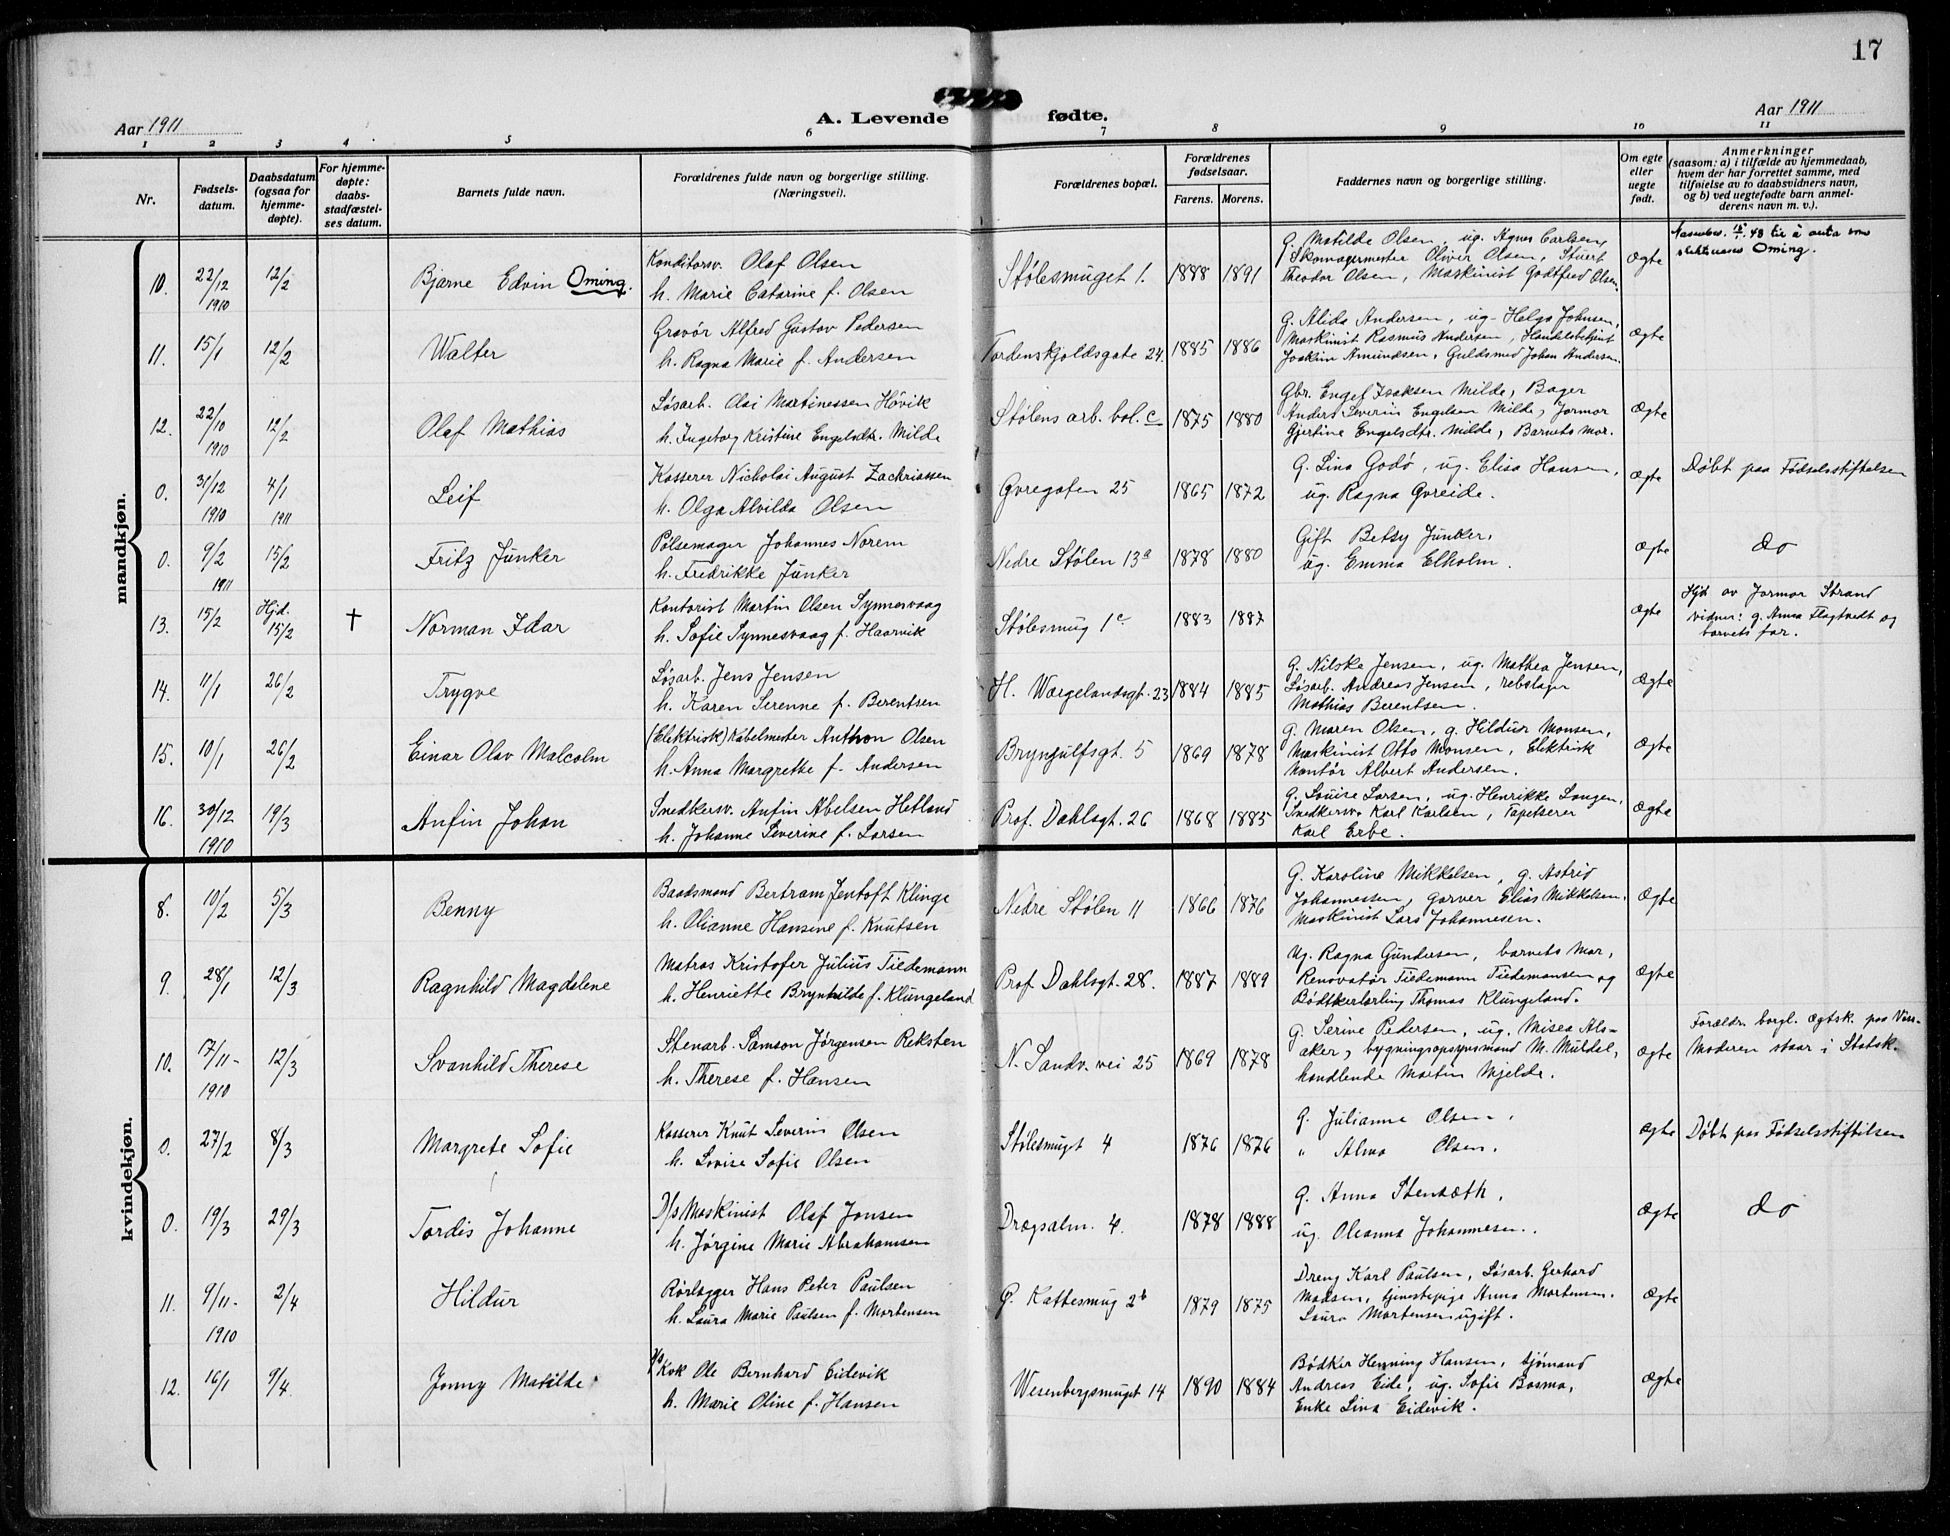 17
Aar 1911
A. Levende fødte.
Aar 1911
1 2 3 4 5 6 7 8 9 10 11
Nr.
Fødsels-
datum.
Daabsdatum
(ogsaa for
hjemme-
døpte).
For hjemme-
døpte:
daabs-
stadfæstel-
ses datum.
Barnets fulde navn.
Forældrenes fulde navn og borgerlige stilling.
(Næringsvei).
Forældrenes bopæl.
Forældrenes
fødselsaar.
Farens. Morens.
Faddernes navn og borgerlige stilling.
Om egte
eller
uegte
født.
Anmerkninger
(saasom: a) i tilfælde av hjemmedaab,
hvem der har forrettet samme, med
tilføielse av to daabsvidners navn,
og b) ved uegtefødte barn anmel-
derens navn m. v.).
mandkjøn.
10. 22/12 1910 12/2 Bjarne Edvin Oming.
Konditorsv. Olaf Olsen
h. Marie Catarine f. Olsen
Stølesmuget 1. 1888 1891
G. Matilde Olsen, ug. Agnes Carlsen,
Skomagermester Oliver Olsen, Stuert
Theodor Olsen, Maskinist Godtfred Olsen.
Ægte
48 til å anta som
slektsnavn Oming.
11. 15/1 12/2 Walter
Gravør Alfred Gustav Pedersen
h. Ragna Marie f. Andersen
Tordenskjoldsgate 24. 1885 1886
G. Alida Andersen, ug. Helga Johnsen,
Maskinist Rasmus Andersen, Handelsbetjent
Joakim Amundsen, Guldsmed Johan Andersen.
Ægte
12. 22/10 1910 12/2 Olaf Mathias
Løsarb. Olai Martinessen Høvik
h. Ingeborg Kristine Engelsdtr. Milde
Stølens arb. bol. c 1875 1880
Gbr. Engel Isaksen Milde, Bager
Anders Severin Engelsen Milde, Jormor
Gjertine Engelsdtr. Milde, Barnets Mor.
Ægte
0. 31/12 1910 4/1 1911 Leif
Kasserer Nicholai August Zachriassen
h. Olga Alvilda Olsen
Gvregaten 25 1865 1872
G. Lina Godø, ug. Elisa Hansen,
ug. Ragna Gvreide.
Ægte
Døbt paa Fødselsstiftelsen
0. 9/2 1911 15/2 Fritz Junker
Pølsemager Johannes Norem
h. Fredrikke Junker
Nedre Stølen 13a 1878 1880
Gift Betsy Junker,
ug. Emma Elholm.
Ægte
do
13. 15/2 Hjd. 15/2 † Norman Idar
Kontorist Martin Olsen Synnesvaag
h. Sofie Synnesvaag f. Haarvik
Stølesmug 1c 1883 1887
Ægte
Hjd av Jormor Strand
vidner: g. Anna Flagtvedt og
barnets far.
14. 11/1 26/2 Trygve
Løsarb. Jens Jensen
h. Karen Serenne f. Berentsen
H. Wergelandsgt. 23 1884 1885
G. Nilske Jensen, ug. Mathea Jensen,
Løsarb. Andreas Jensen, rebslager
Mathias Berentsen.
Ægte
15. 10/1 26/2 Einar Olav Malcolm
(Elektrisk) Kabelmester Anthon Olsen
h. Anna Margrethe f. Andersen
Bryngulfsgt. 5 1869 1878
g. Maren Olsen, g. Hildur Monsen,
Maskinist Otto Monsen, Elektrisk
Montør Albert Andersen.
Ægte
16. 30/12 1910 19/3 Anfin Johan
Snedkersv. Anfin Abelsen Hetland
h. Johanne Severine f. Larsen
Prof. Dahlsgt. 26 1868 1885
G. Louise Larsen, ug. Henrikke Langen,
Snedkersv. Karl Karlsen, Tapetserer
Karl Erbe.
Ægte
kvindekjøn.
8. 10/2 5/3 Benny
Baadsmand Bertram Jentoft Klinge
h. Olianne Hansine f. Knutsen
Nedre Stølen 11 1866 1876
G. Karoline Mikkelsen, g. Astrid
Johannessen, garver Elias Mikkelsen.
Maskinist Lars Johannesen.
Ægte
9. 28/1 12/3 Ragnhild Magdelene
Matros Kristofer Julius Tiedemann
h. Henriette Brynhilde f. Klungeland
Prof. Dahlsgt. 28. 1887 1889
Ug. Ragna Gundersen, barnets Mor,
Renovatør Tiedemann Tiedemansen og
Bødtkerlærling Thomas Klungeland.
Ægte
10. 17/11- 1910 12/3 Svanhild Therese
Stenarb. Samson Jørgensen Reksten
h. Therese f. Hansen
N. Sandv. vei 25 1869 1878
G. Serine Pedersen, ug. Misea Als-
aker, bygningsopsynsmand M. Muldal,
handlende Martin Mjelde.
Ægte
Forældr. borgl. ægtsk. paa Voss.
Moderen staar i Statsk.
0. 27/2 8/3 Margrete Sofie
Kasserer Knut Severin Olsen
h. Lovise Sofie Olsen
Stølesmuget 4 1876 1876
G. Julianne Olsen,
" Alma Olsen.
Ægte
Døbt paa Fødselsstiftelsen
0. 19/3 29/3 Tordis Johanne
D/s Maskinist Olaf Jonsen
h. Jørgine Marie Abrahamsen
Dragsalm. 4. 1878 1888
G. Anna Stensæth,
ug. Oleanna Johannesen.
Ægte
do
11. 9/11- 1910 2/4 Hildur
Rørlægger Hans Peter Paulsen
h. Laura Marie Paulsen f. Mortensen
G. Kattesmug 2b 1879 1875
Dreng Karl Paulsen, Løsarb. Gerhard
Madsen, tjenestepige Anna Mortensen.
Laura Mortensen ugift.
Ægte
12. 16/1 9/4. Jonny Matilde
Kok Ole Bernhard Eidevik
h. Marie Oline f. Hansen
Wesenbergsmuget 14 1890 1884
Bødker Henning Hansen, sjømand
Andreas Eide, ug. Sofie Basma,
Enke Lina Eidevik.
Ægte